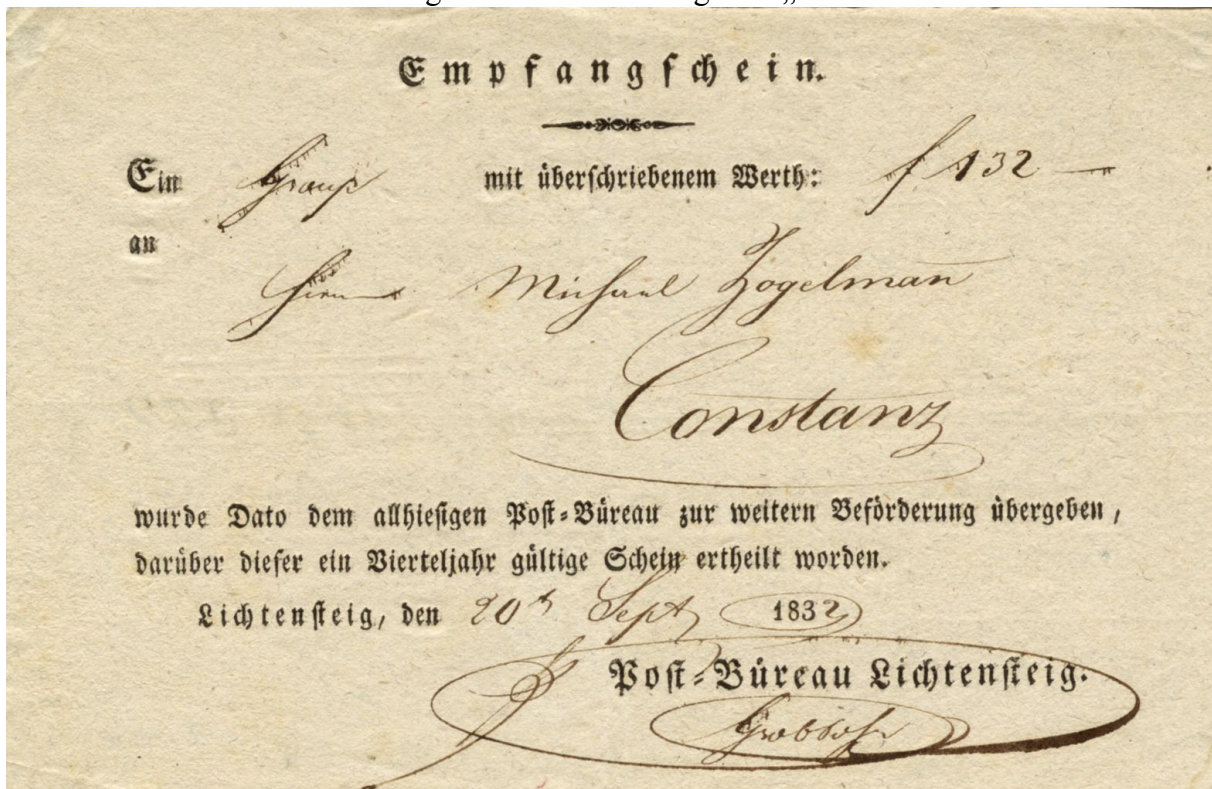 Empfangschein.
Ein Group mit überschriebenem Werth: f 132 —
an
Herrn Michael Zogelman̄
Constanz
wurde Dato dem allhiesigen Post-Büreau zur weitern Beförderung übergeben,
darüber dieser ein Vierteljahr gültige Schein ertheilt worden.
Lichtensteig, den 20t Sept 1832
Post-Büreau Lichtensteig.